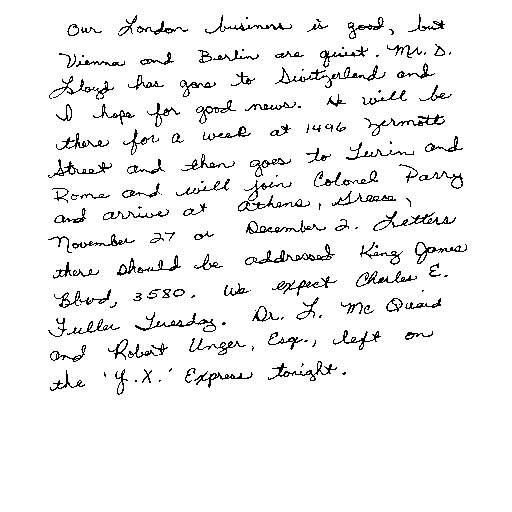 Our London business is good, but
Vienna and Berlin are quiet. Mr. D.
Lloyd has gone to Switzerland and
I hope for good news. He will be
there for a week at 1496 Zermott
Street and then goes to Turin and
Rome and will join Colonel Parry
and arrive at Athens, Greece,
November 27 or December 2. Letters
there should be addressed King James
Blvd, 3580. We expect Charles E.
Fuller Tuesday. Dr. L. McQuaid
and Robert Unger, Esq., left on
the 'Y.X.' Express tonight.